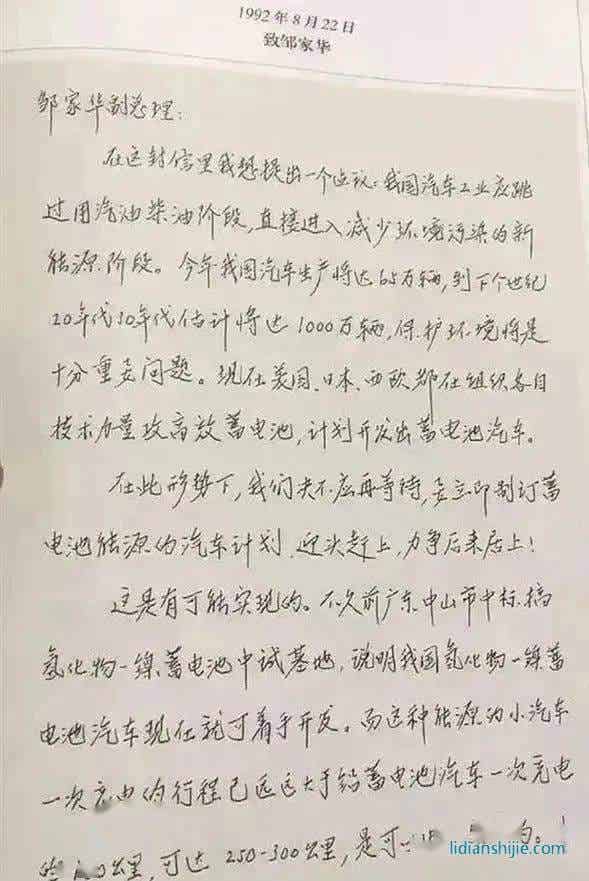 1992年8月22日
致邹家华
邹家华副总理：
在这封信里我想提出一个建议：我国汽车工业应跳
过用汽油柴油阶段，直接进入减少环境污染的新
能源阶段。今年我国汽车生产将达65万辆，到下个世纪
20年代30年代估计将达1000万辆，保护环境将是
十分重要问题。现在美国、日本、西欧都在组织各自
技术力量攻高效蓄电池，计划开发出蓄电池汽车。
在此形势下，我们决不应再等待，要立即制订蓄
电池能源的汽车计划，迎头赶上，力争后来居上！
这是有可能实现的。不久前广东中山市中标搞
氢化物-镍蓄电池中试基地，说明我国氢化物-镍蓄
电池汽车现在就可着手开发。而这种能源的小汽车
一次充电的行程已远远大于铅蓄电池汽车一次充电
公里，可达250-300公里，是可
lidianshijie.com